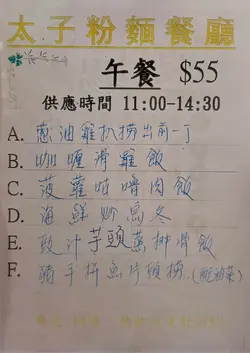 太子粉麵餐廳
午餐 $55
供應時間 11:00-14:30
A. 蔥油雞扒撈出前一丁
B. 咖喱滑雞飯
C. 菠蘿咕嚕肉飯
D. 海鮮炒烏冬
E. 豉汁芋頭蒸排骨飯
F. 豬手拼魚片頭撈(配油菜)